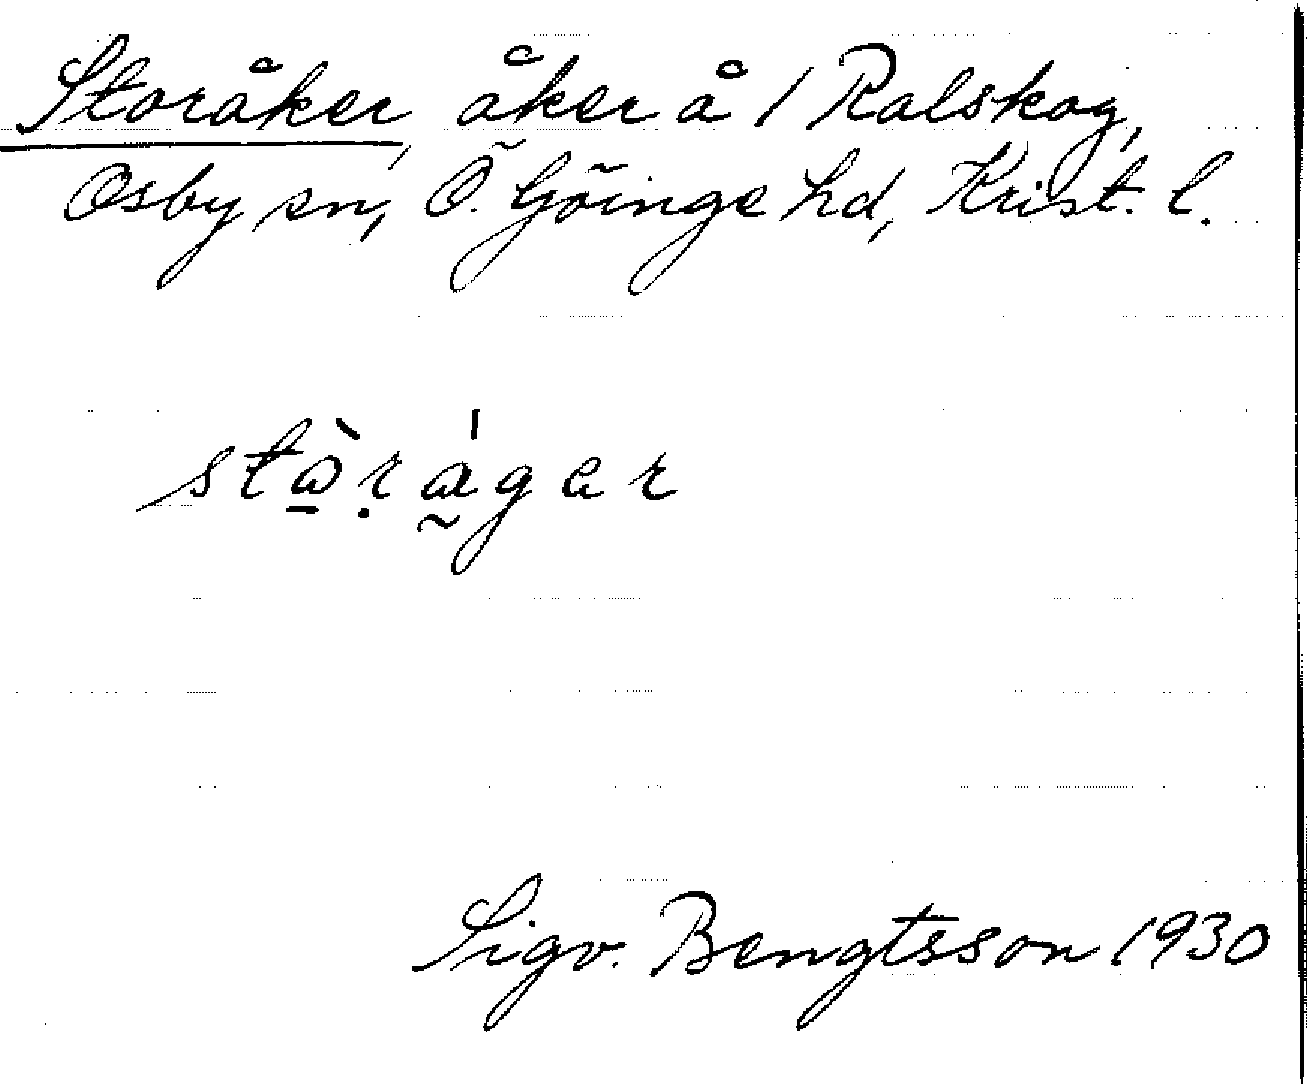 Storåker, åker å 1 Ralskog,
Osby sn, Ö. Göinge hd, Krist. l.
Sigv. Bengtsson 1930